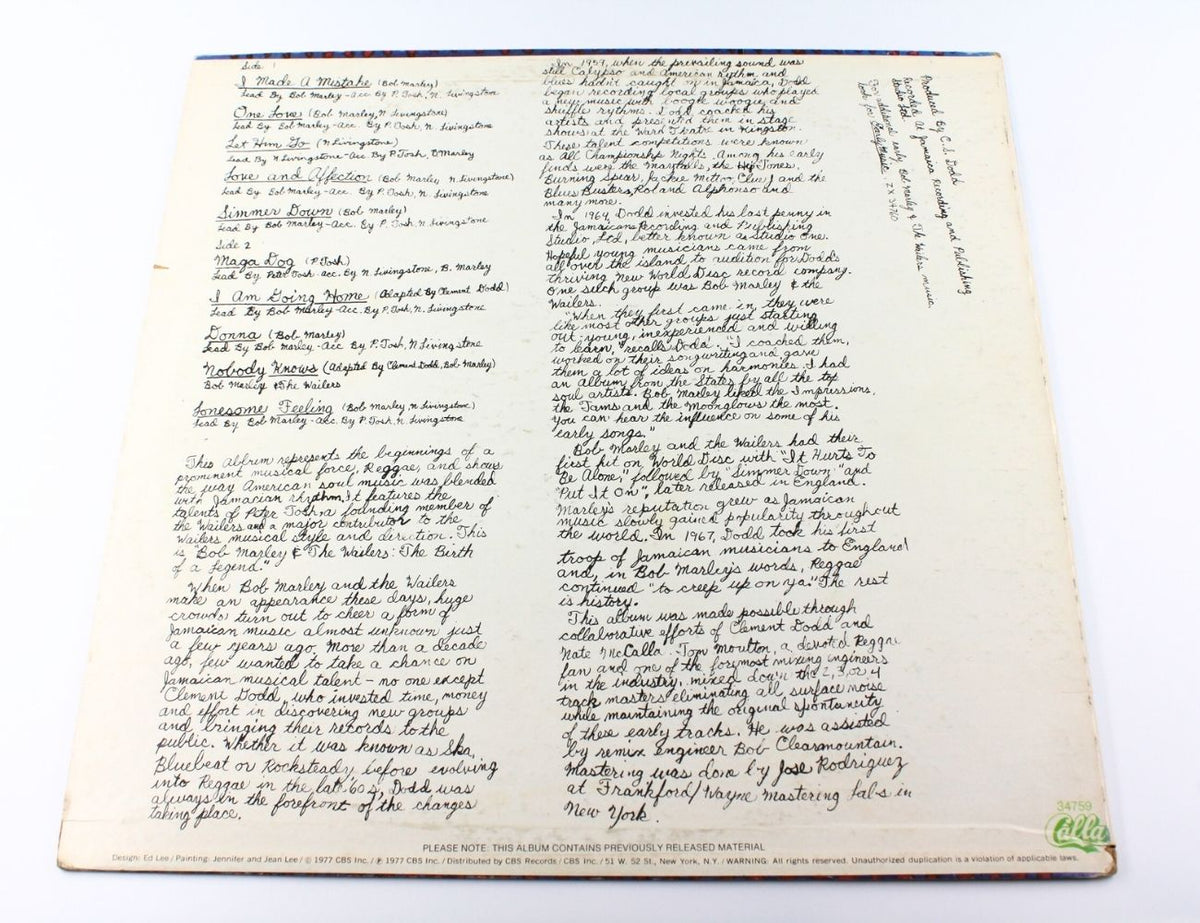 Side 1
I Made A Mistake (Bob Marley)
Lead By Bob Marley - Acc By P. Tosh, N. Livingstone
One Love (Bob Marley, N Livingstone)
Lead By Bob Marley - Acc. By P. Tosh, N. Livingstone
Let Him Go (N Livingstone)
Lead By N Livingstone - Acc By P. Tosh, B Marley
Love and Affection (Bob Marley N. Livingstone)
Lead By Bob Marley - Acc. By P. Tosh, N. Livingstone
Simmer Down (Bob Marley)
Lead By Bob Marley - Acc. By P. Tosh, N. Livingstone
Side 2
Maga Dog (P. Tosh)
Lead By Peter Tosh acc. By N. Livingstone, B. Marley
I Am Going Home (Adapted By Clement Dodd)
Lead By Bob Marley - Acc. By P. Tosh, N. Livingstone
Donna (Bob Marley)
Lead By Bob Marley - Acc By P. Tosh, N Livingstone
Nobody Knows (Adapted By Clement Dodd, Bob Marley)
Bob Marley & The Wailers
Lonesome Feeling (Bob Marley, N Livingstone)
Lead By Bob Marley - Acc. By P. Tosh, N. Livingstone
This Album represents the beginnings of a
prominent musical force, Reggae, and shows
the way American soul music was blended
with Jamacian rhythm. It features the
talents of Peter Tosh, a founding member of
the Wailers and a major contributor to the
Wailers musical style and direction. This
is "Bob Marley & The Wailers: The Birth
of a Legend."
When Bob Marley and the Wailers
make an appearance these days, huge
crowds turn out to cheer a form of
Jamaican music almost unknown just
a few years ago. More than a decade
ago, few wanted to take a chance on
Jamaican musical talent - no one except
Clement Dodd, who invested time, money
and effort in discovering new groups
and bringing their records to the
public. Whether it was known as Ska,
Bluebeat or Rocksteady before evolving
into Reggae in the late 60's, Dodd was
always in the forefront of the changes
taking place.
In 1959, when the prevailing sound was
still Calypso and American rythm and
blues hadn't caught on in Jamaica, Dodd
began recording local groups who played
a new music with boogie woogie and
shuffle rythms. Dodd coached his
artists and presented them in stage
shows at the Ward Theatre in Kingston.
These talent competitions were known
as All Championship Nights. Among his early
finds were the Maythalls, the Hep Tones,
Burning Spear, Jackie Mitto, Clue J and the
Blues Busters, Roland Alphonso and
many more.
In 1964, Dodd invested his last penny in
the Jamaican Recording and Publishing
Studio Ltd, better known as Studio One.
Hopeful young musicians came from
all over the island to audition for Dodd's
thriving New World Disc record company.
One such group was Bob Marley & the
Wailers.
"When they first came in, they were
like most other groups just starting
out: young, inexperienced and willing
to learn," recalls Dodd. "I coached them,
worked on their songwriting and gave
them a lot of ideas on harmonies. I had
an album from the States by all the top
soul artists. Bob Marley liked the Impressions,
the Tams and the Moonglows the most.
You can hear the influence on some of his
early songs."
Bob Marley and the Wailers had their
first hit on World Disc with "It Hurts To
Be Alone," followed by "Simmer Down" and
"Put It On", later released in England.
Marley's reputation grew as Jamaican
music slowly gained popularity throughout
the world. In 1967, Dodd took his first
troop of Jamaican musicians to England
and, in Bob Marley's words, Reggae
continued "to creep up on ya." The rest
is history.
This album was made possible through
collaborative efforts of Clement Dodd and
Nate McCalla. Tom Moulton, a devoted Reggae
fan and one of the foremost mixing engineers
in the industry, mixed down the 2, 3, or 4
track masters eliminating all surface noise
while maintaining the original spontaneity
of these early tracks. He was assisted
by remix engineer Bob Clearmountain.
Mastering was done by Jose Rodriguez
at Frankford/Wayne Mastering Labs in
New York.
Produced By C.S. Dodd
Recorded At Jamaica Recording and Publishing
Studio Ltd.
For additional early Bob Marley & The Wailers music
look for Early Music. ZX 34760
34759
Calla
PLEASE NOTE: THIS ALBUM CONTAINS PREVIOUSLY RELEASED MATERIAL
Design: Ed Lee / Painting: Jennifer and Jean Lee / © 1977 CBS Inc. / ℗ 1977 CBS Inc. / Distributed by CBS Records / CBS Inc. / 51 W. 52 St., New York, N.Y. / WARNING: All rights reserved. Unauthorized duplication is a violation of applicable laws.